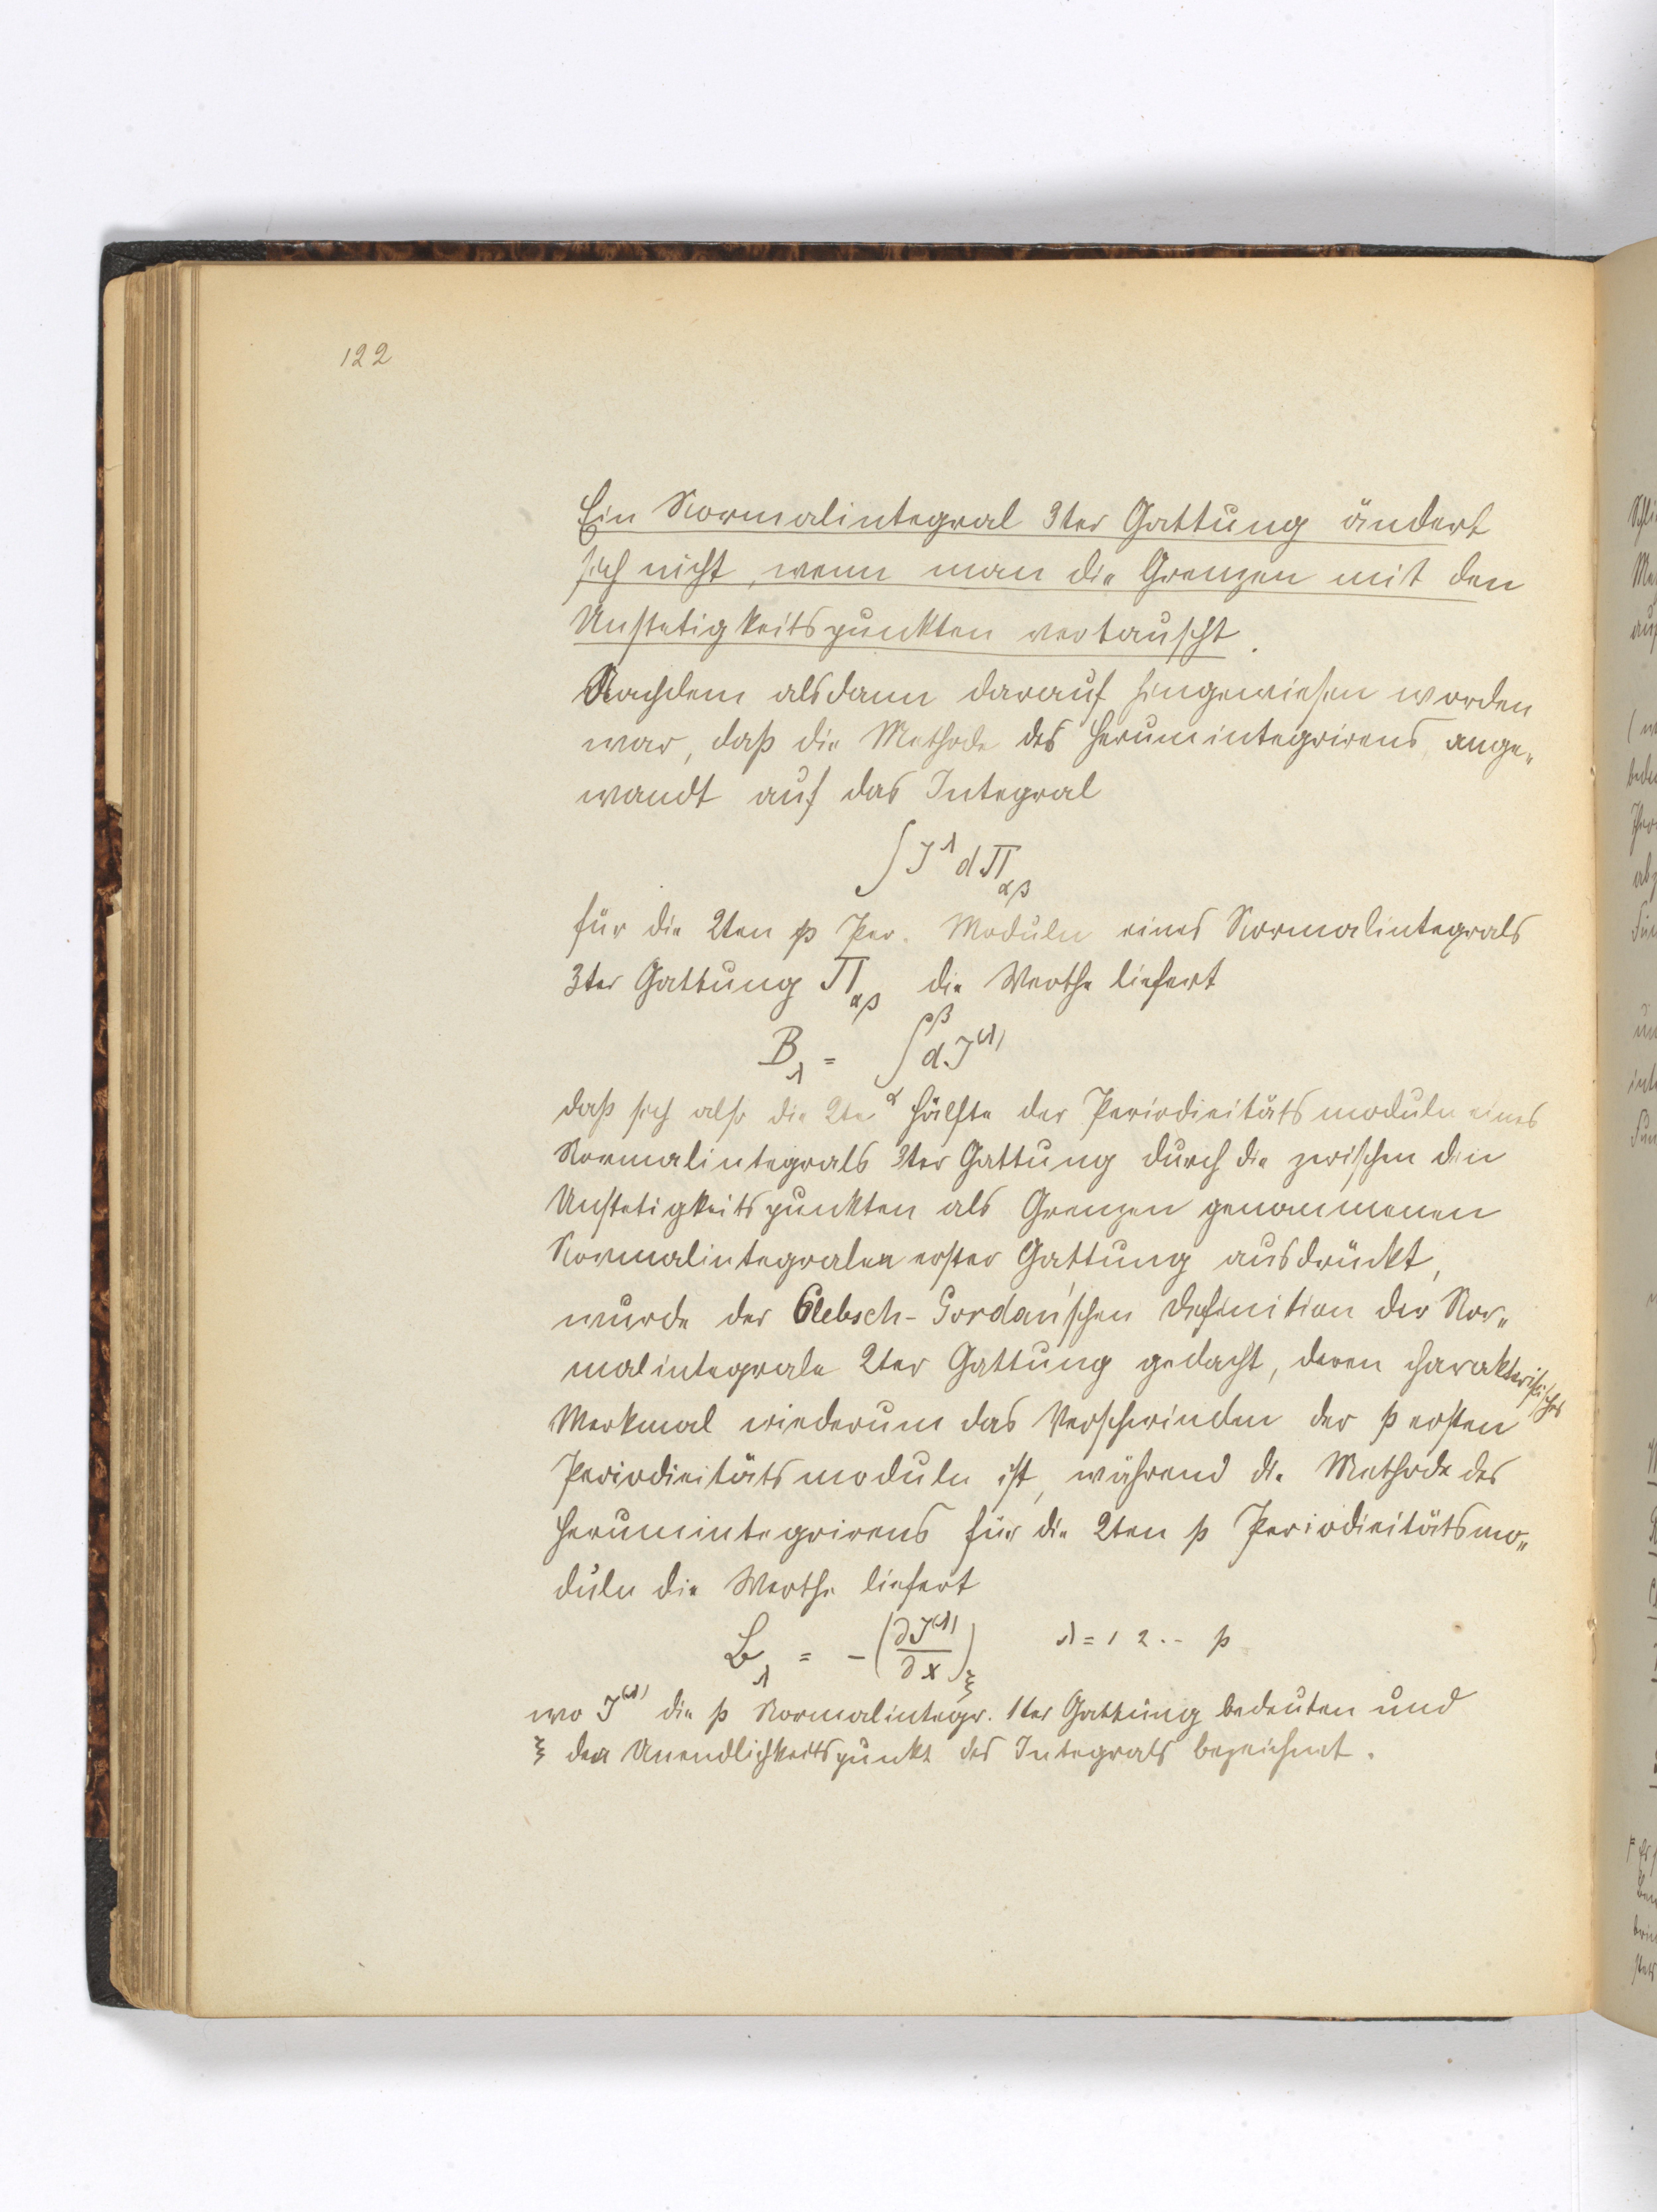 122
Ein Normalintegral 3ter Gattung ändert
sich nicht, wenn man die Grenzen mit den
Unstetigkeitspunkten vertauscht.
Nachdem alsdann darauf hingewiesen worden
war, daß die Methode des Herumintegrirens ange„
wandt auf das Integral
∫ J^λ dΠ_αβ
für die 2ten p Per. Moduln eines Normalintegrals
3ter Gattung Π_αβ die Werthe liefert
B_λ = ∫_α^β dJ^(λ)
daß sich also die 2te Hälfte der Periodicitätsmoduln eines
Normalintegrals 3ter Gattung durch die zwischen den
Unstetigkeitspunkten als Grenzen genommenen
Normalintegralen erster Gattung ausdrückt,
wurde der Clebsch-Gordan'schen Definition der Nor„
malintegrale 2ter Gattung gedacht, deren charakteristisches
Merkmal wiederum das Verschwinden der p ersten
Periodicitätsmoduln ist, während die Methode des
Herumintegrirens für die 2ten p Periodicitätsmo„
duln die Werthe liefert
B_λ = -(∂J^(λ)/∂x)_ξ λ = 1 2 .. p
wo J^(λ) die p Normalintegr. 1ter Gattung bedeuten und
ξ den Unendlichkeitspunkt des Integrals bezeichnet.